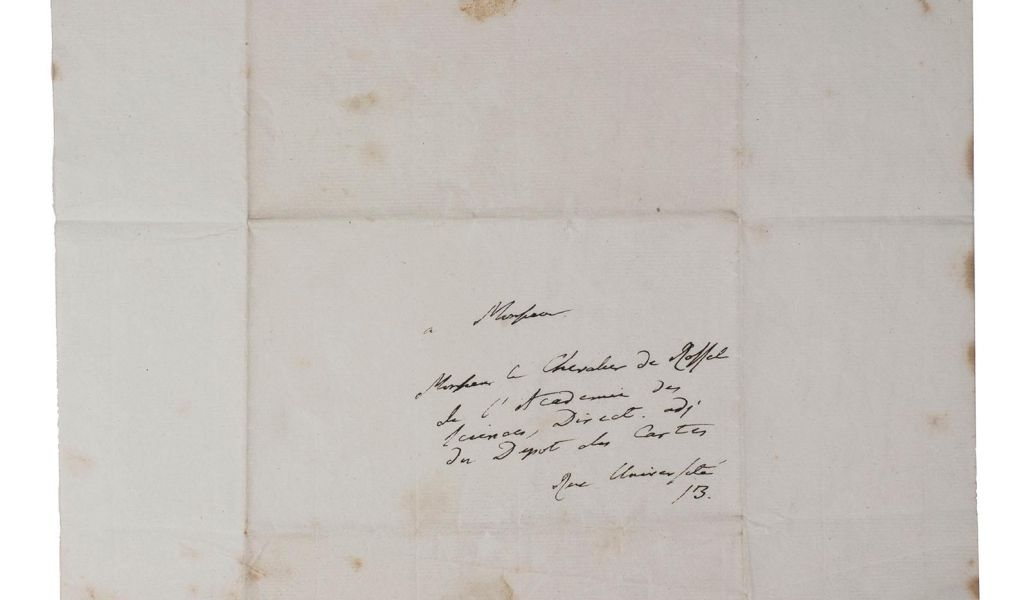 a Monsieur
Monsieur le Chevalier de Rossel
de l'Academie des
Sciences, Direct. adj
du Depot des Cartes
Rue Université
13.